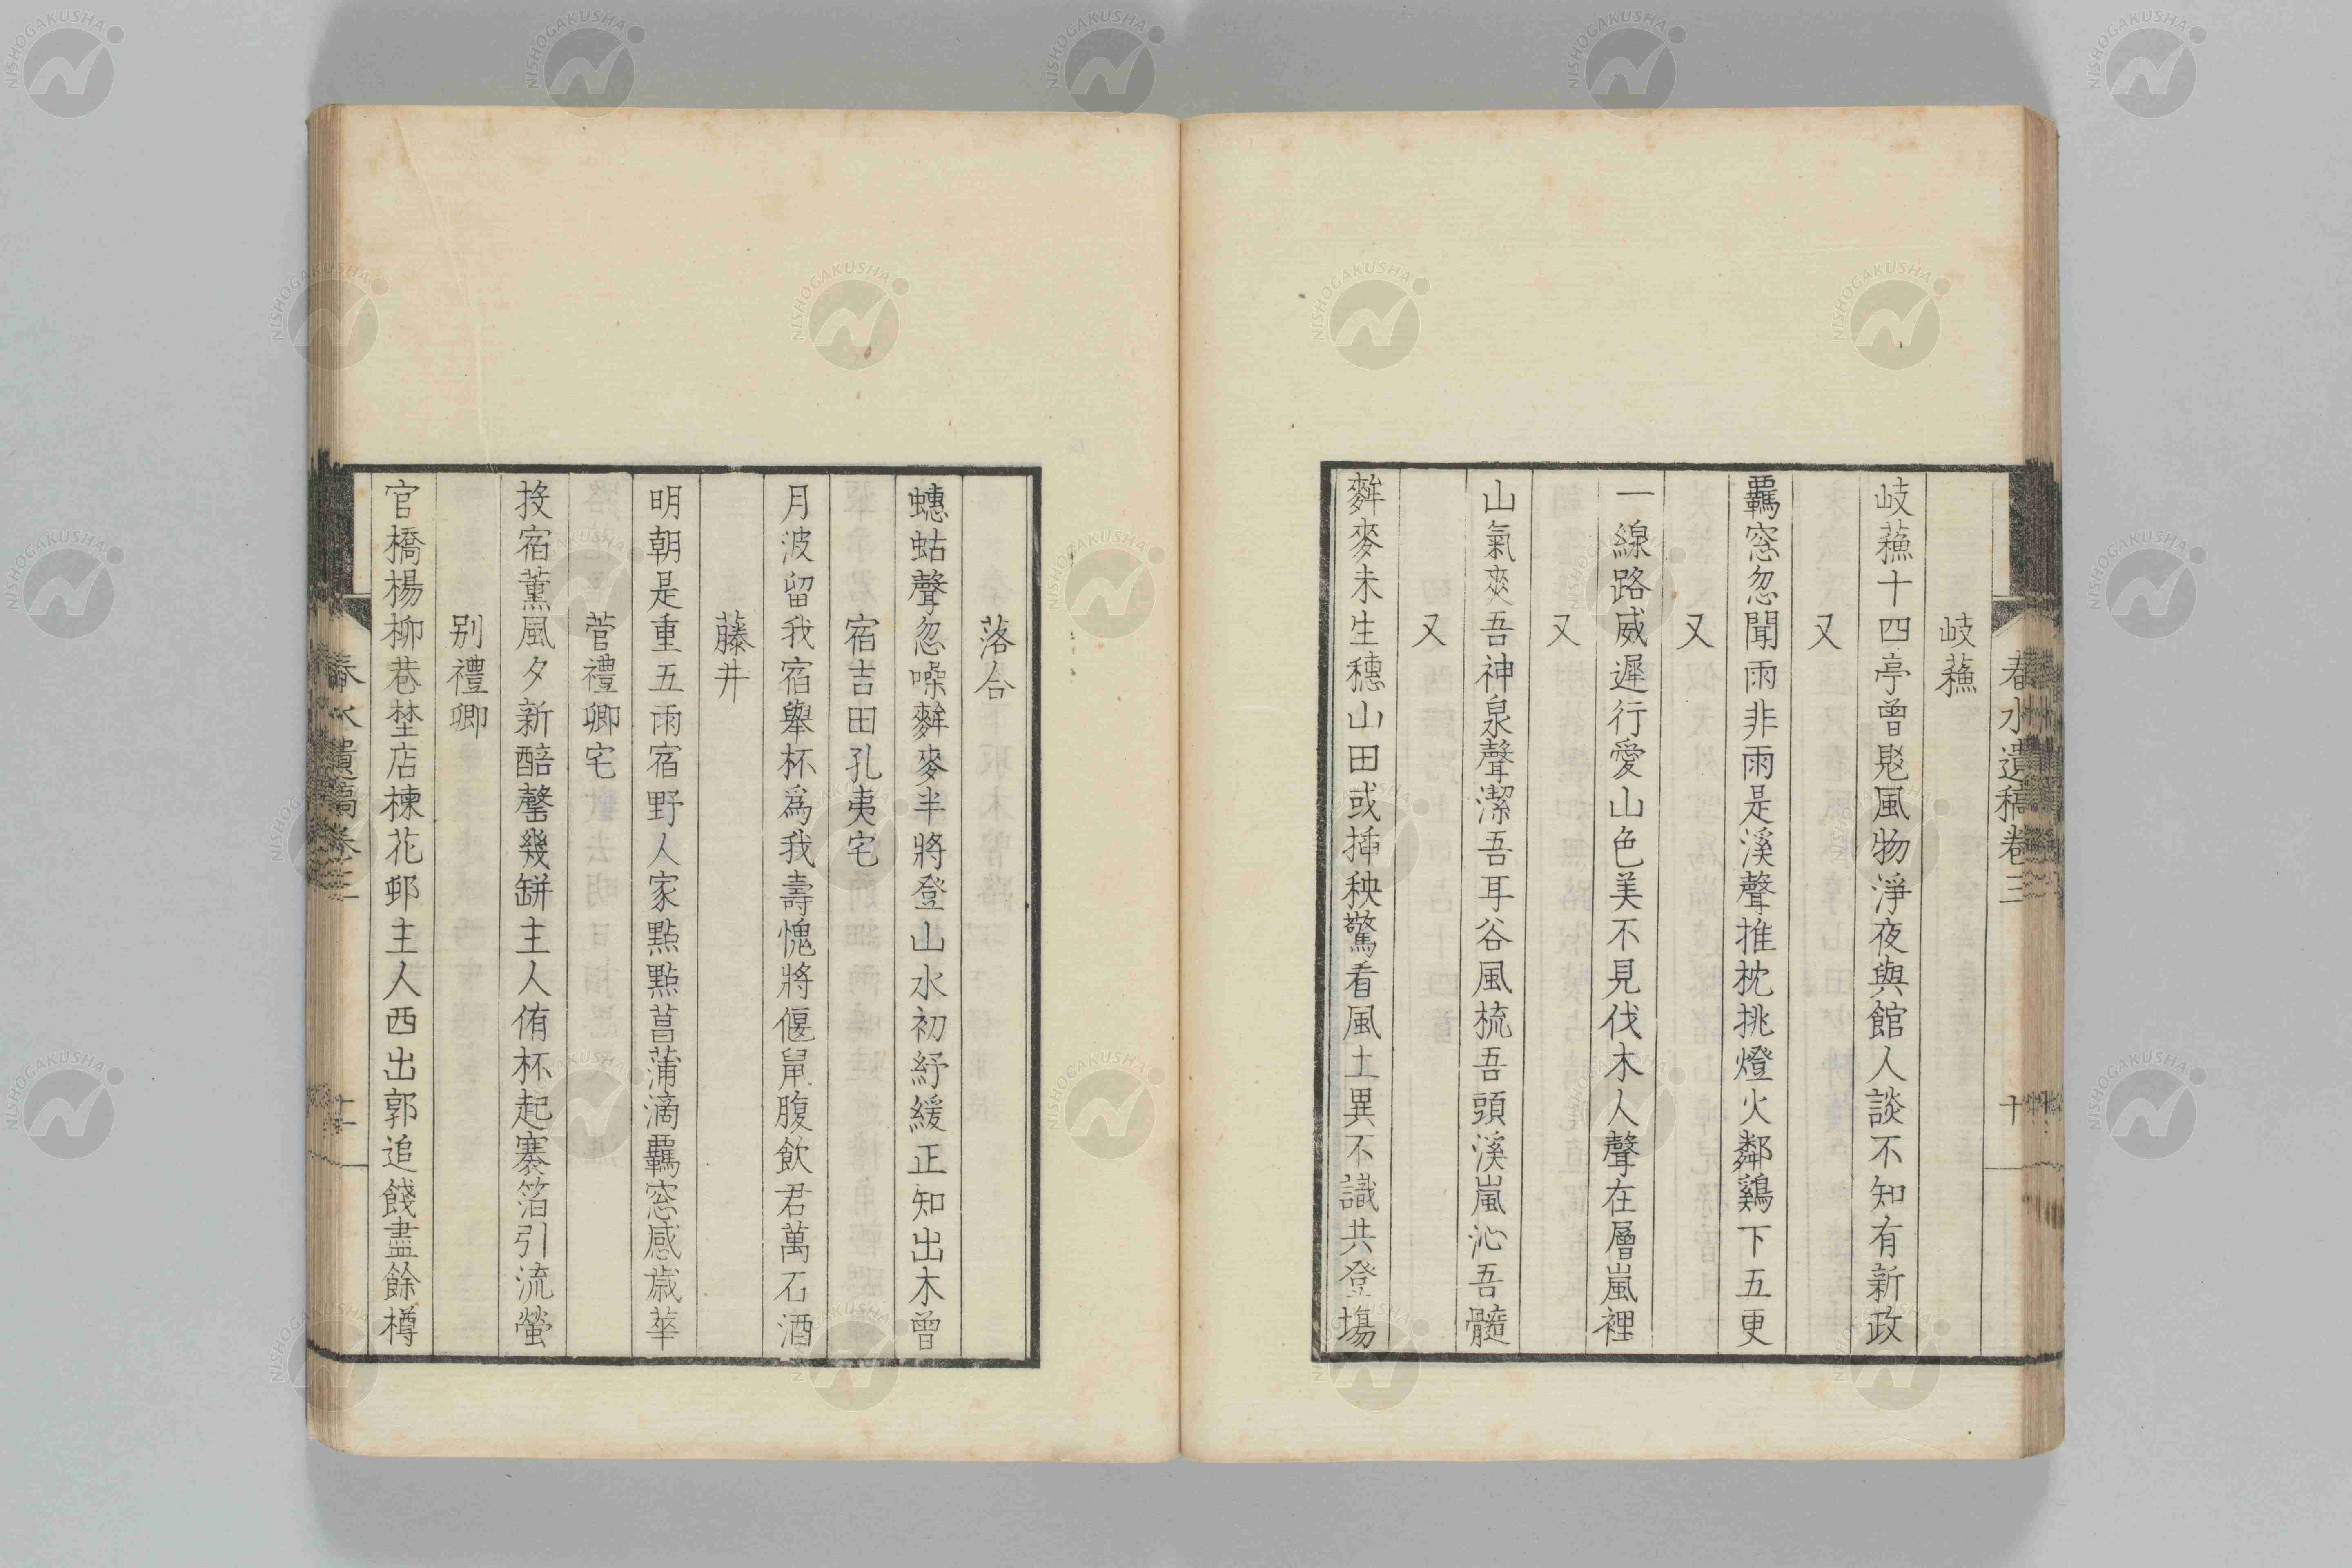 春水遺稿卷三
十
岐蘓
岐蘓十四亭曾毖風物淨夜與館人談不知有新政
又
羈窓忽聞雨非雨是溪聲推枕挑燈火鄰鷄下五更
又
一線路威遲行愛山色美不見伐木人聲在層嵐裡
又
山氣爽吾神泉聲潔吾耳谷風梳吾頭溪嵐沁吾髓
又
麰麥未生穗山田或挿秧驚看風土異不識共登塲
落合
蟪蛄聲忽噪麰麥半將登山水初紓緩正知出木曾
宿吉田孔夷宅
月波留我宿舉杯爲我壽愧將偃鼠腹飲君萬石酒
藤井
明朝是重五雨宿野人家點點菖蒲滴羈窓感歳華
菅禮卿宅
投宿薫風夕新醅罄幾缾主人侑杯起褰箔引流螢
別禮卿
官橋楊柳巷埜店楝花邨主人西出郭追餞盡餘樽
春水遺稿卷三
十一
NISHOGAKUSHA